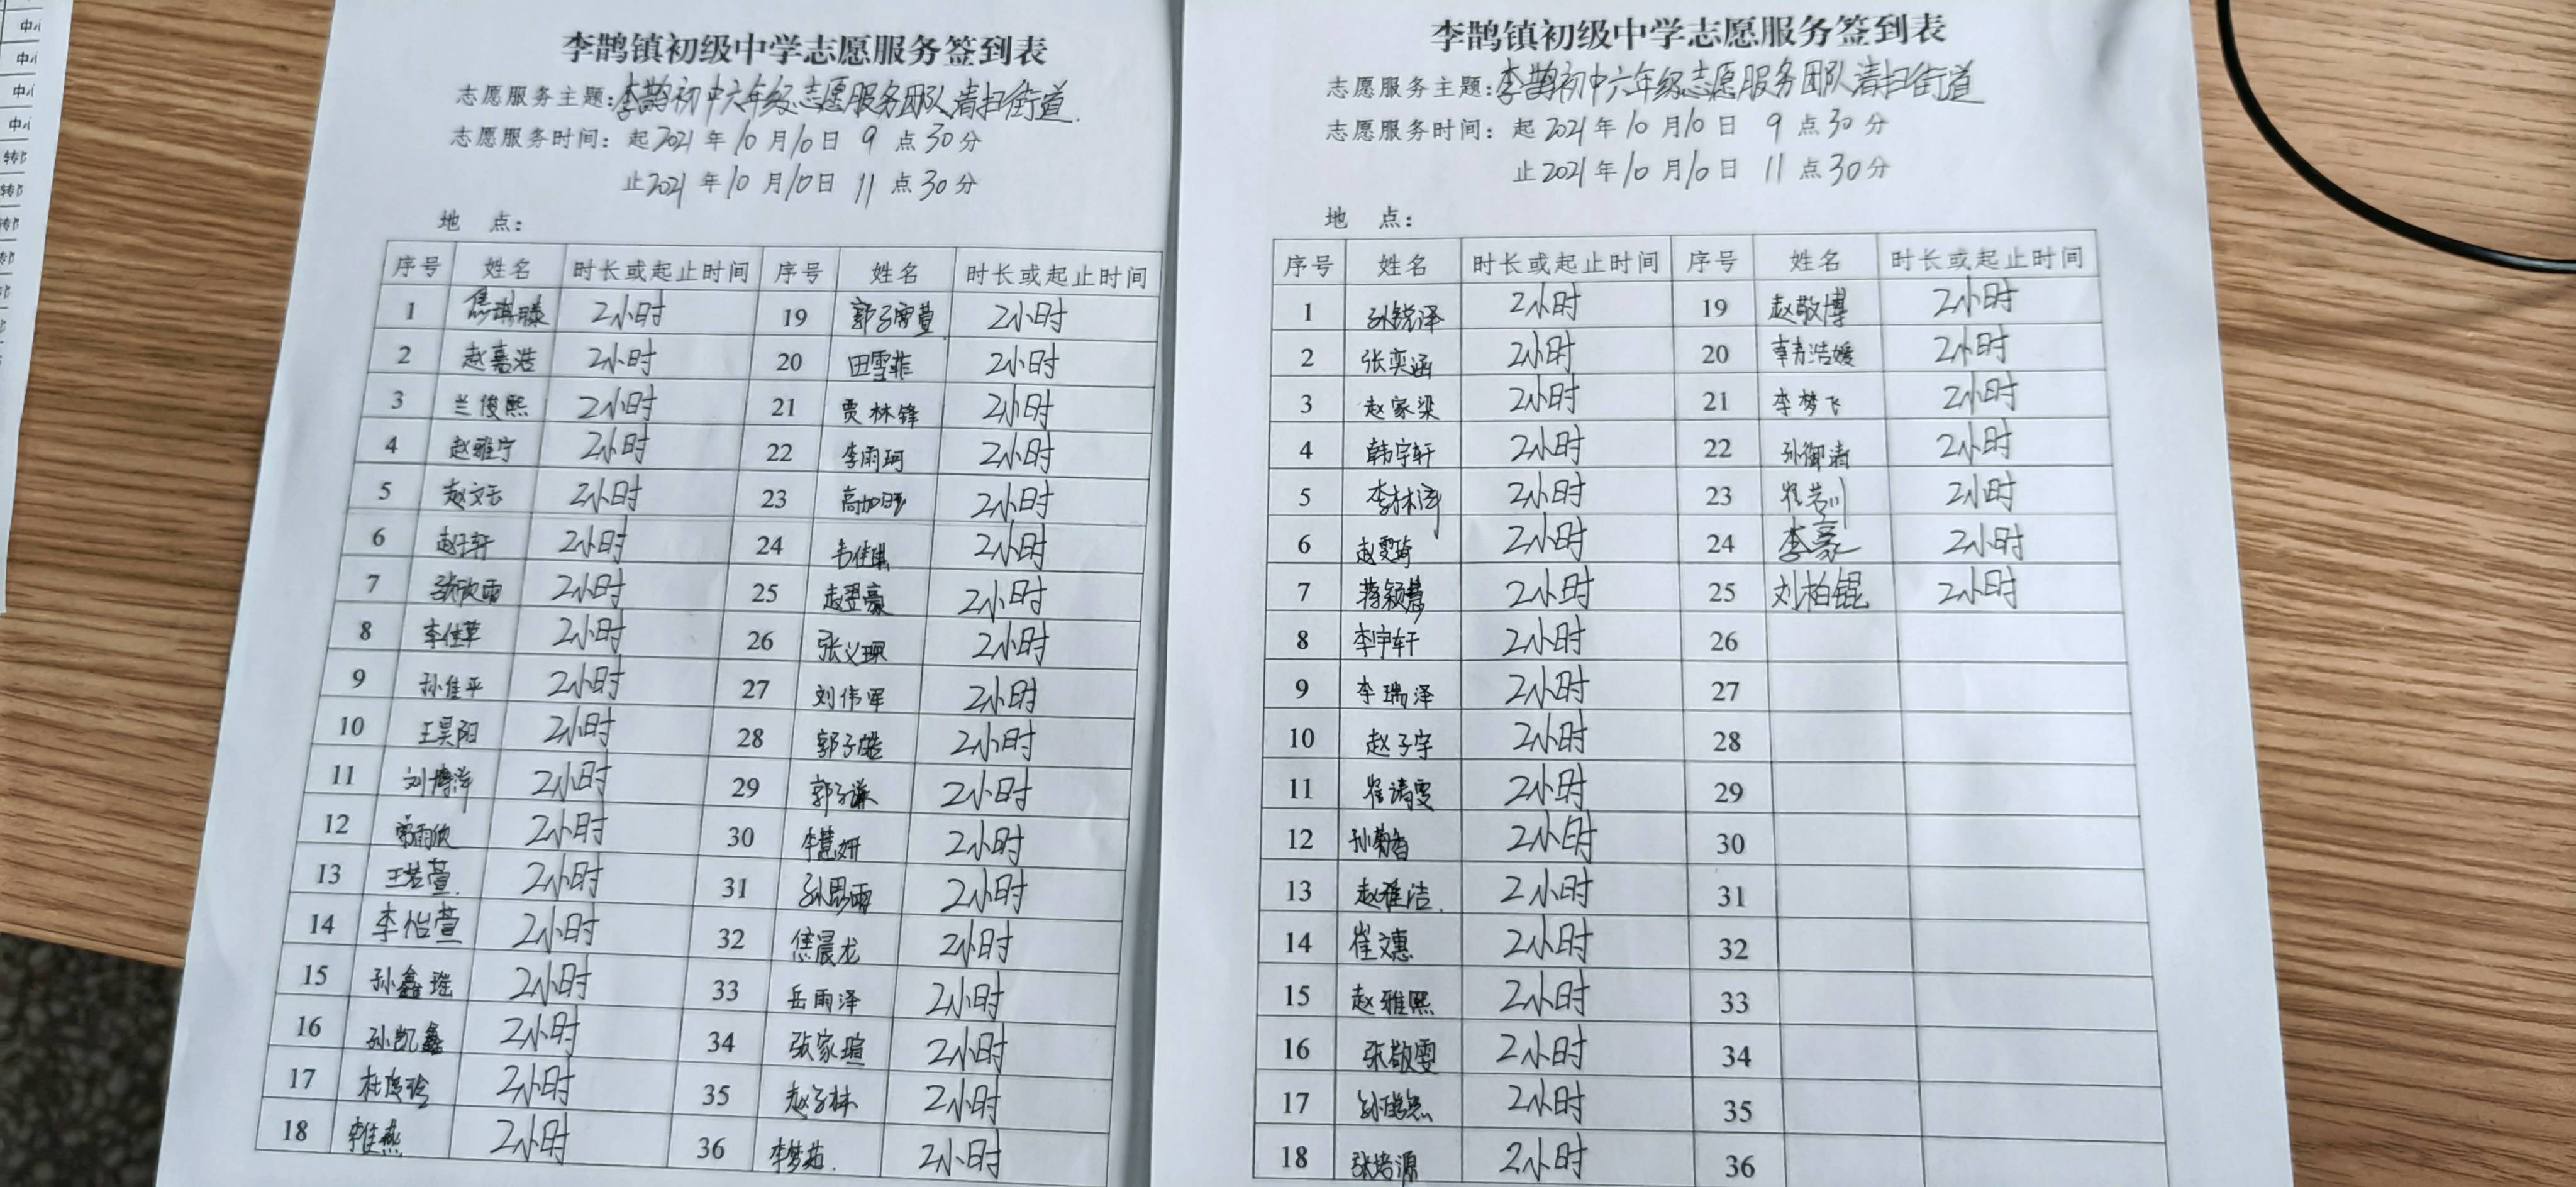 李鹊镇初级中学志愿服务签到表
志愿服务主题:李鹊初中六年级志愿服务团队清扫街道.
志愿服务时间: 起2021年10月10日 9点30分
止2021年10月10日 11点30分
地 点:
序号 姓名 时长或起止时间 序号 姓名 时长或起止时间
1 2小时 19 郭子雯萱 2小时
2 赵嘉浩 2小时 20 田雪菲 2小时
3 兰俊熙 2小时 21 贾林锋 2小时
4 赵雅宁 2小时 22 李雨珂 2小时
5 2小时 23 2小时
6 赵子轩 2小时 24 2小时
7 张欣雨 2小时 25 赵翌豪 2小时
8 2小时 26 2小时
9 孙佳平 2小时 27 刘伟军 2小时
10 王昊阳 2小时 28 2小时
11 刘博洋 2小时 29 郭子谦 2小时
12 2小时 30 李慧妍 2小时
13 王若萱. 2小时 31 孙思雨 2小时
14 李怡萱 2小时 32 焦晨龙 2小时
15 孙鑫瑶 2小时 33 岳雨泽 2小时
16 孙凯鑫 2小时 34 张家瑄 2小时
17 2小时 35 赵子林 2小时
18 李佳燕 2小时 36 李梦茹. 2小时
李鹊镇初级中学志愿服务签到表
志愿服务主题:李鹊初中六年级志愿服务团队清扫街道
志愿服务时间: 起2021年10月10日 9点30分
止2021年10月10日 11点30分
地 点:
序号 姓名 时长或起止时间 序号 姓名 时长或起止时间
1 孙锐泽 2小时 19 赵敬博 2小时
2 张奕涵 2小时 20 2小时
3 赵家梁 2小时 21 李梦飞 2小时
4 韩宇轩 2小时 22 2小时
5 李林泽 2小时 23 崔若川 2小时
6 赵雯琦 2小时 24 李豪 2小时
7 蒋颖慧 2小时 25 刘柏锟 2小时
8 李宇轩 2小时 26
9 李瑞泽 2小时 27
10 赵子宇 2小时 28
11 崔靖雯 2小时 29
12 孙菊香 2小时 30
13 赵雅洁. 2小时 31
14 崔文惠 2小时 32
15 赵雅熙 2小时 33
16 张敬雯 2小时 34
17 2小时 35
18 张培源 2小时 36